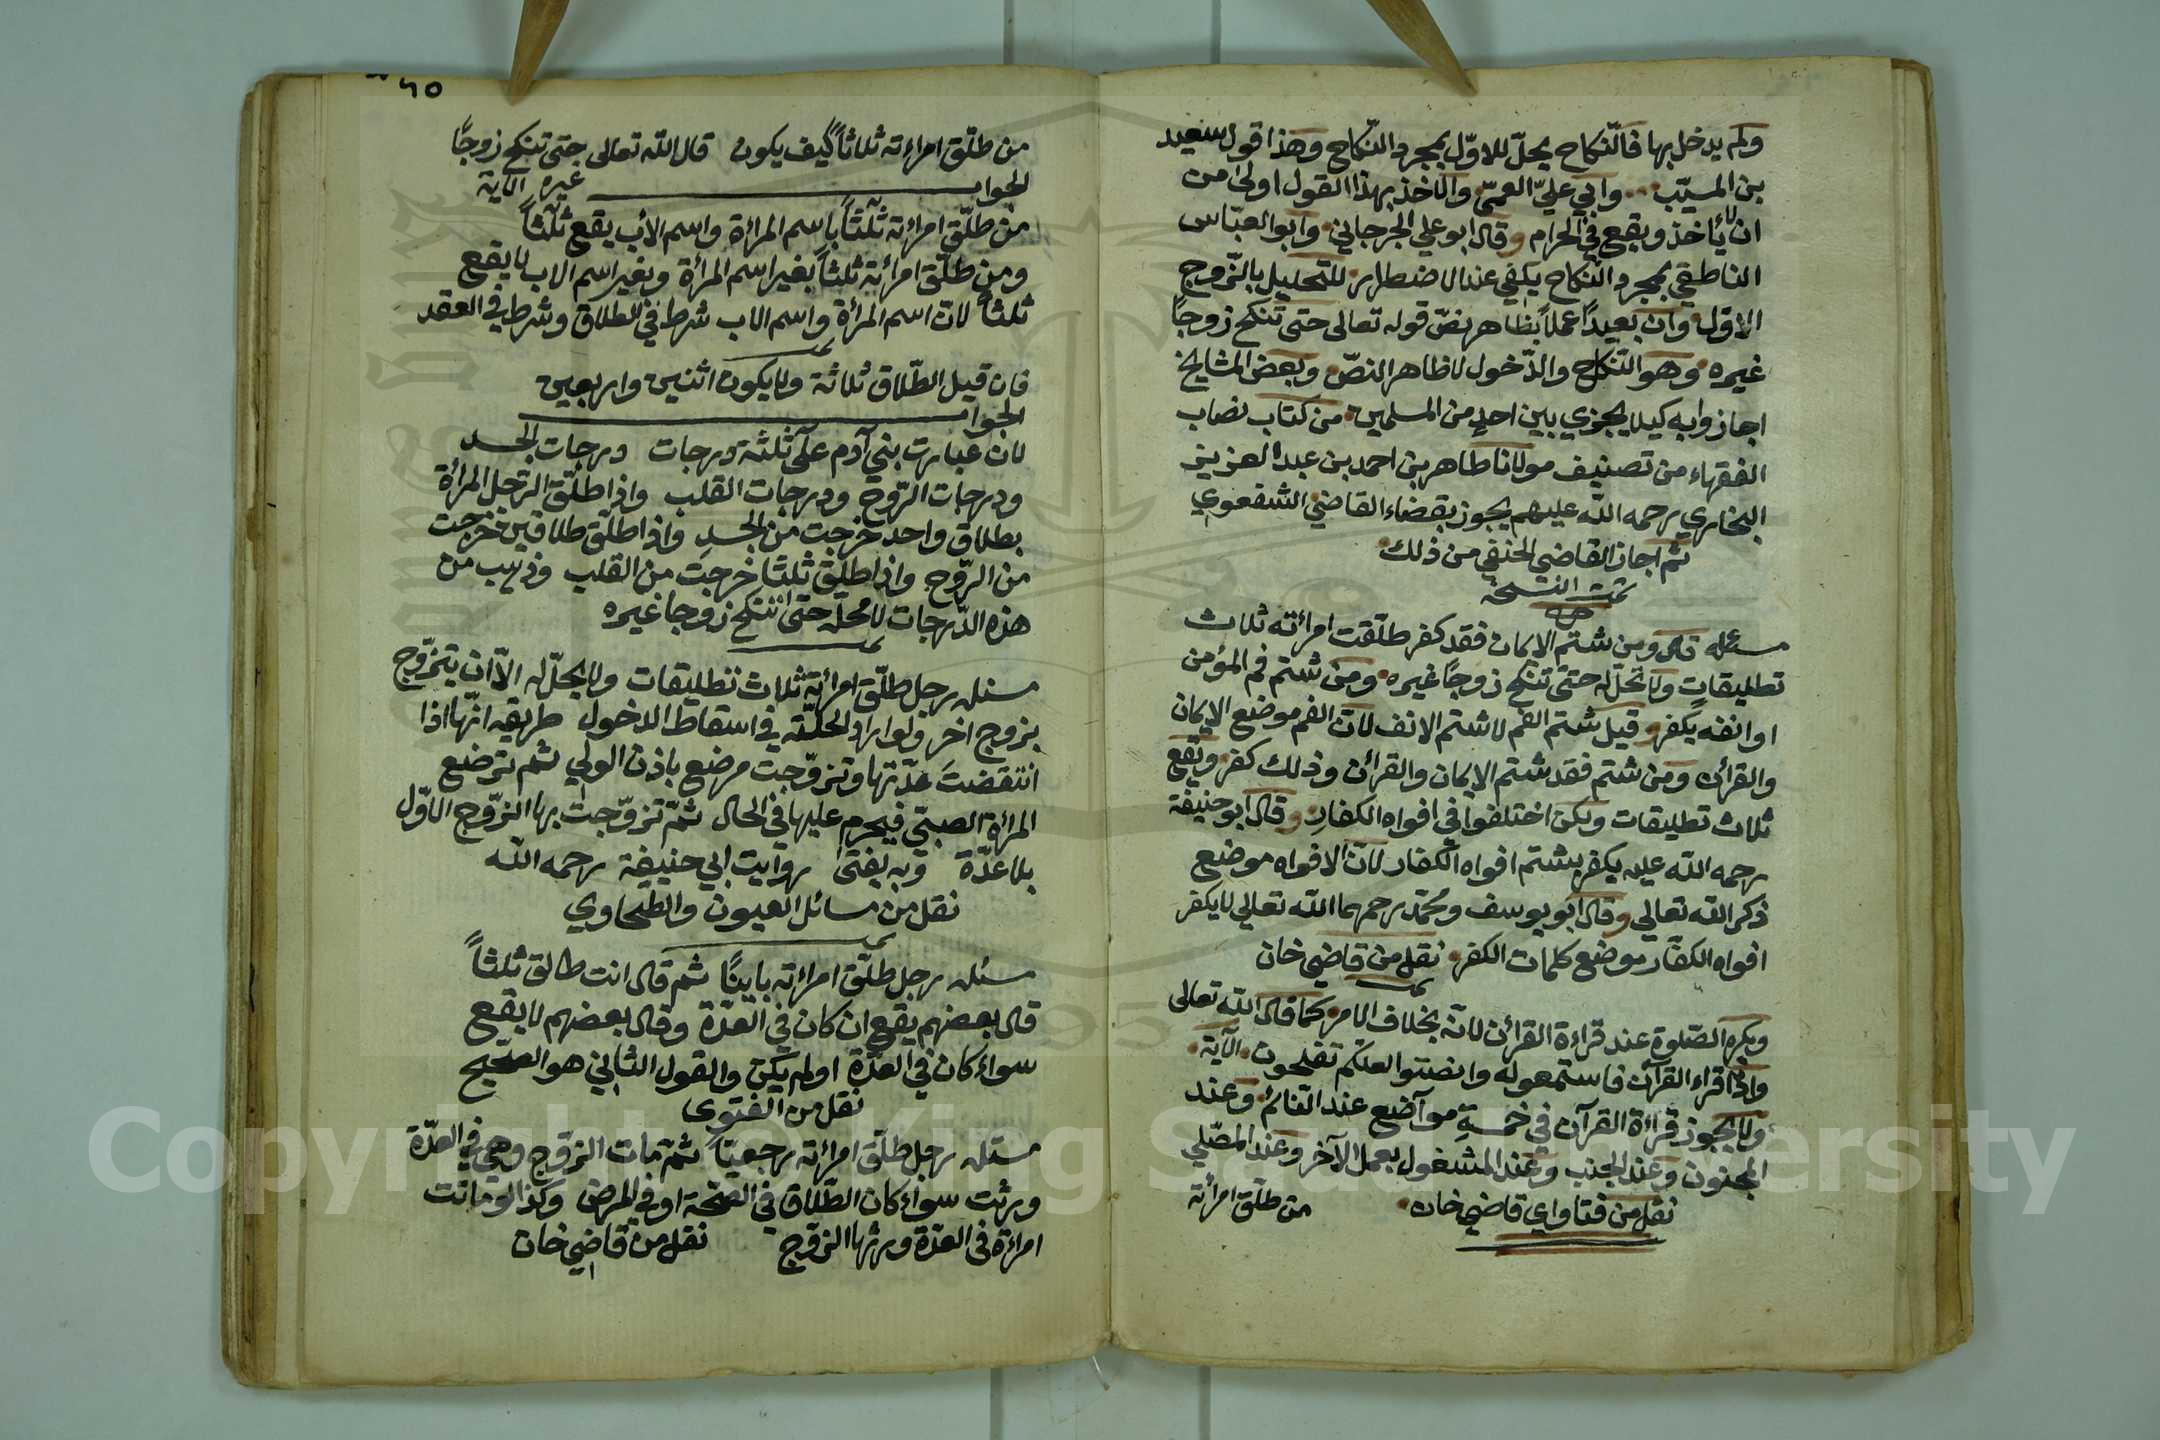 ولم يدخل بها فالنّكاح يحلّ للاوّل بمجرد النّكاح وهذا قول سعيد
بن المسيّب وابي عليّ العميّ والاخذ بهذا القول اولى من
ان لا يأخذ ويقع في الحرام وقال ابو علي الجرجاني وابو العبّاس
الناطقي بمجرد النّكاح يكفي عند الاضطرار للتحليل بالزّوج
الاوّل وان بعيداً عملاً بظاهر نصّ قوله تعالى حتى تنكح زوجاً
غيره وهو النّكاح والدّخول لا ظاهر النصّ وبعض المشايخ
اجازوا به كيلا يجزي بين احدٍ من المسلمين من كتاب نصاب
الفقهاء من تصنيف مولانا طاهر بن احمد بن عبد العزيز
البخاري رحمه اللّه عليهم يجوز بقضاء القاضي الشفعوي
ثم اجاز القاضي الحنفي من ذلك
تمت النسخة
مسئله قال ومن شتم الايمان فقد كفر طلّقت امرأته ثلاث
تطليقاتٍ ولا تحلّ له حتّى تنكح زوجاً غيره ومن شتم فم المؤمن
او انفه يكفر وقيل شتم الفم لا شتم الانف لانّ الفم موضع الايمان
والقرأن ومن شتم فقد شتم الايمان والقرأن وذلك كفر ويقع
ثلاث تطليقات ولكن اختلفوا في افواه الكفار وقال ابو حنيفة
رحمه اللّه عليه يكفر بشتم افواه الكفار لانّ الافواه موضع
ذكر اللّه تعالى وقال ابو يوسف ومحمّد رحمهما اللّه تعالي لا يكفر
افواه الكفّار موضع كلمات الكفر نقل من قاضي خان
ويكره الصّلوة عند قراءة القرأن لانّه بخلاف الامر كما قال اللّه تعالى
واذا قراء القرآن فاستمعوا له وانصتوا لعلكم تفلحون الآية
ولا يجوز قراءة القرآن في خمسةِ مواضع عند النائم وعند
المجنون وعند الجنب وعند المشغول بعمل الآخر وعند المصّلي
نقل من فتاواي قاضي خان
من طلّق امرأته
٦٥
من طلّق امراءته ثلاثاً كيف يكون قال اللّه تعالى حتى تنكح زوجًا
غيره الاية
الجواب
من طلّق امراءته ثلثاً باسم المراءة واسم الأب يقع ثلثاً
ومن طلّق امرأته ثلثاً بغير اسم المرأة وبغير اسم الاب لا يقع
ثلثاً لان اسم المرأة واسم الاب شرط في الطلاق وشرط في العقد
فان قيل الطّلاق ثلاثة ولا يكون اثنين واربعين
الجواب
لان عبارت بني آدم على ثلثة درجات درجات الجسد
ودرجات الرّوح ودرجات القلب واذا طلّق الرّجل المرأة
بطلاق واحد خرجت من الجسدِ واذا طلّق طلاقين خرجت
من الرّوح واذا طلّق ثلثا خرجت من القلب وذهب من
هذه الدّرجات لا محلّه حتى تنكح زوجا غيره
مسئله رجل طلّق امرأته ثلاث تطليقات ولا يحلّ له الّا ان يتزوّج
بزوج اخر ولو اراد الحلّته في اسقاط الدخول طريقه انّها اذا
انتقضت عدّتها وتزوّجت مرضع باذن الولي ثم ترضع
المرأة الصبىّ فيحرم عليها في الحال ثمّ تزوّجت بها الزّوج الاوّل
بلا عدّة وبه يفتى روايت ابي حنيفة رحمه اللّه
نقل من مسائل العيون والطّحاوي
مسئله رجل طلّق امراءته باينًا ثم قال انت طالق ثلثاً
قال بعضهم يقع ان كان في العدّة وقال بعضهم لا يقع
سواء كان في العدّة او لم يكن والقول الثاني هو الصّحيح
نقل من الفتوى
مسئله رجل طلّق امراءته رجعيّا ثمّ مات الزّوج وهي في العدّة
ورثت سواء كان الطّلاق في الصّحة او في المرض وكذا لو ماتت
امراءة في العدّة ورثها الزّوج نقل من قاضي خان
Copyright © King Saud University